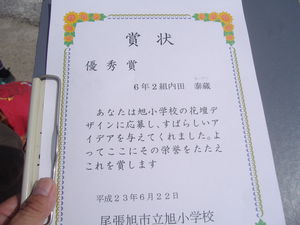 賞状
優秀賞
6年2組内田 泰蔵
あなたは旭小学校の花壇デ
ザインに応募し、すばらしいア
イデアを与えてくれました。よ
ってここにその栄誉をたたえ
これを賞します
平成23年6月22日
尾張旭市立旭小学校